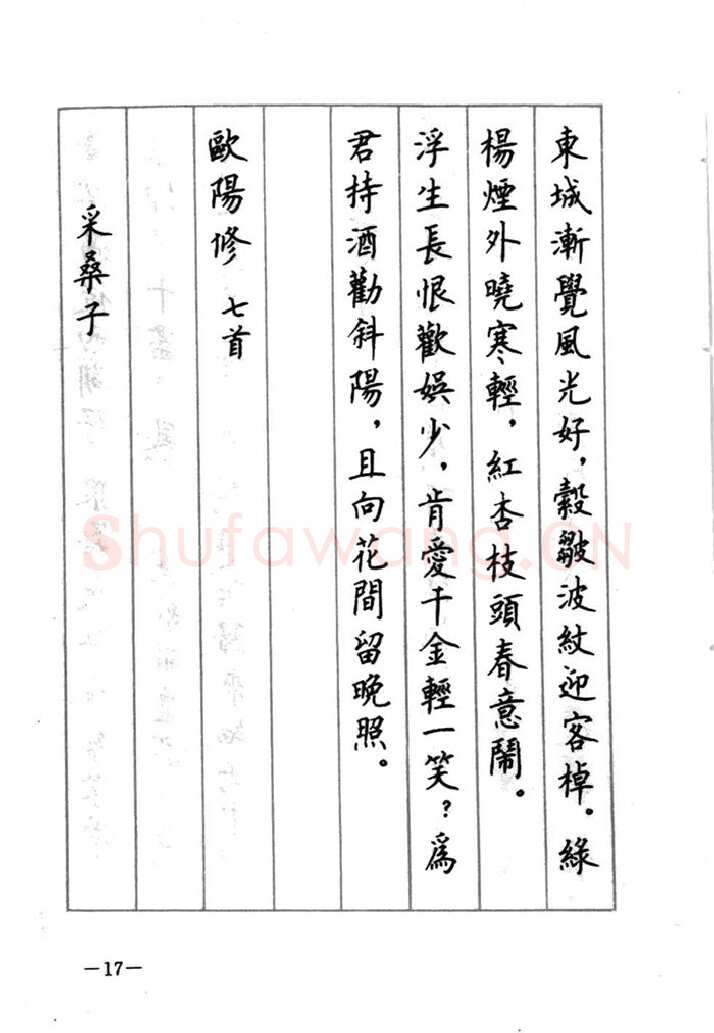 東城漸覺風光好，縠皺波紋迎客棹。綠
楊煙外曉寒輕，紅杏枝頭春意鬧。
浮生長恨歡娛少，肯愛千金輕一笑？爲
君持酒勸斜陽，且向花間留晚照。
歐陽修 七首
采桑子
Shufawang.CN
—17—